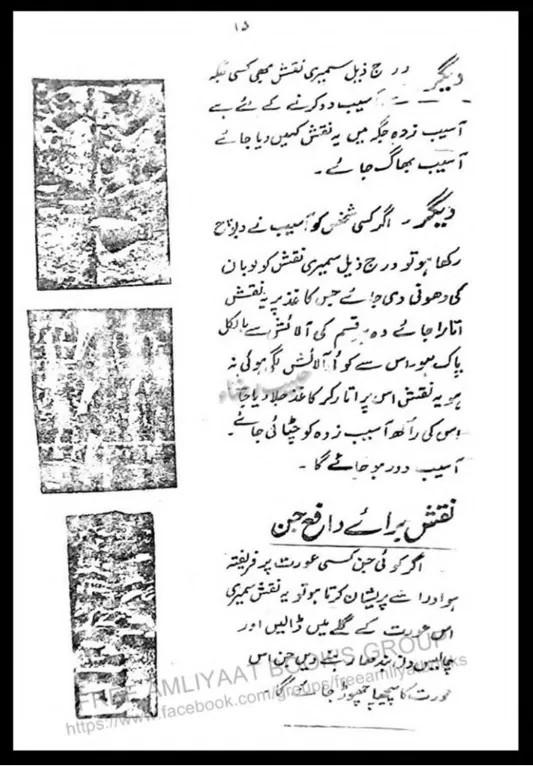 ۱۵
دیگر درج ذیل سمیری نقش بھی کسی جگہ
سے آسیب دور کرنے کے لئے ہے
آسیب زدہ جگہ میں یہ نقش کہیں دیا جائے
آسیب بھاگ جائے۔
دیگر۔ اگر کسی شخص کو آسیب نے
رکھا ہو تو درج ذیل سمیری نقش کو لوبان
کی دھونی دی جائے جس کاغذ پر یہ نقش
اتارا جائے وہ ہر قسم کی آلائش سے بالکل
پاک ہو اور اس سے کوئی آلائش لگی ہوئی نہ
ہو یہ نقش اس پر اتار کر کاغذ جلا دیا جا
اس کی راکھ آسیب زدہ کو چٹائی جائے۔
آسیب دور ہو جائے گا۔
نقش برائے دافع جن
اگر کوئی جن کسی عورت پر فریفتہ
ہو اور اسے پریشان کرتا ہو تو یہ نقش سمیری
اس عورت کے گلے میں ڈالیں اور
چالیس دن بندھا رہنے دیں جن اس
عورت کا پیچھا چھوڑ جائے گا۔
FREE AMLIYAAT BOOKS GROUP
https://www.facebook.com/groups/freeamliyatbooks